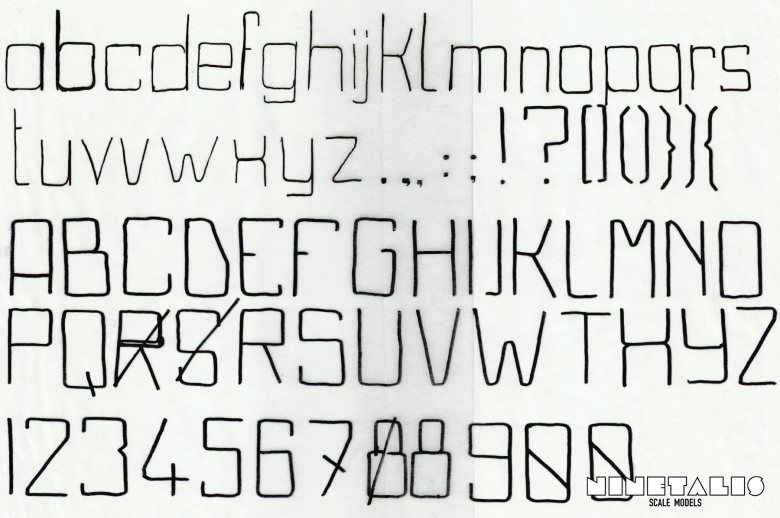 abcdefghijklmnopqrs
tuvvwxyz . .,, : ; ! ? [] () }}{
ABCDEFGHIJKLMNO
PQRSRSUVWTXYZ
123456788900
NINETALIS
SCALE MODELS